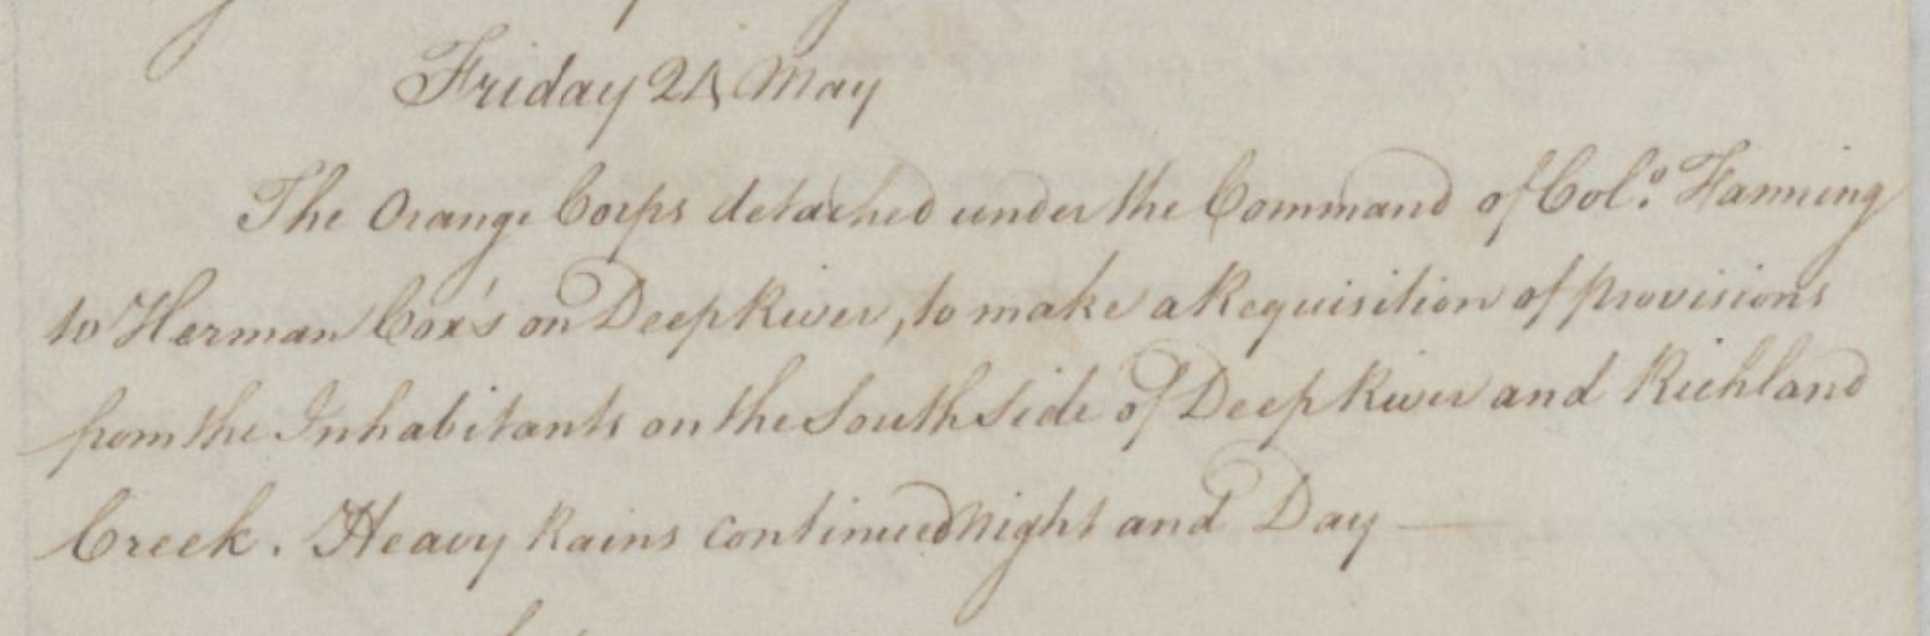 Friday 24 May
The Orange Corps detached under the Command of Col.º Fanning
to Herman Cox's on Deep River, to make a Requisition of provisions
from the Inhabitants on the South side of Deep River and Richland
Creek. Heavy Rains continued Night and Day —